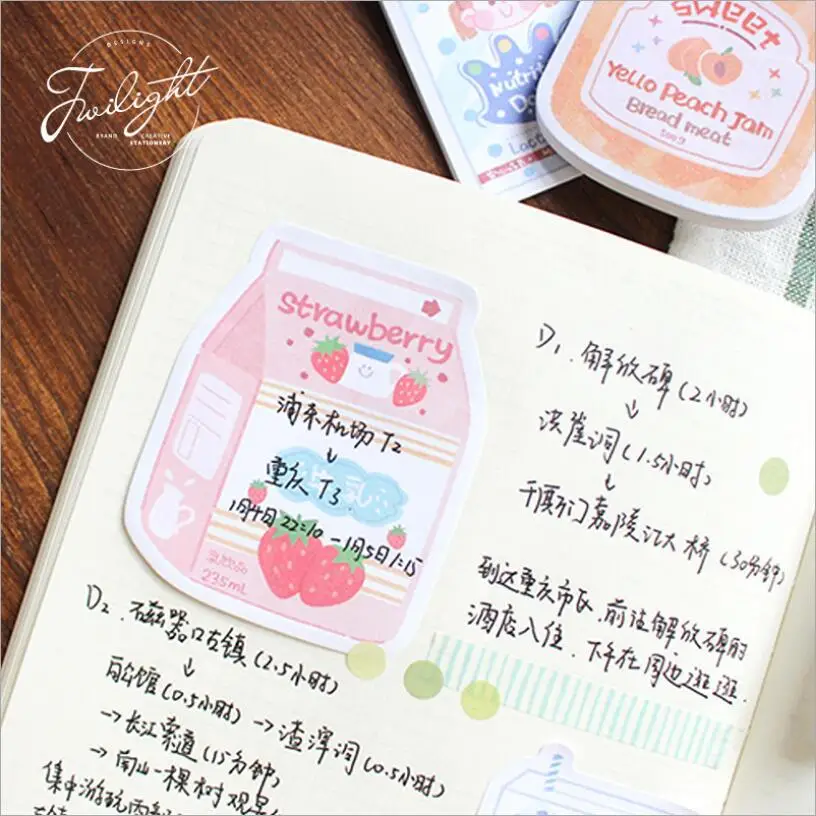 DESIGNS
Twilight
BRAND CREATIVE
STATIONERY
Nutriti
sweet
Yello Peach Jam
Bread meat
500g
strawberry
浦东机场 T2
↓
重庆 T3
1月4日 22:10 — 1月5日 1:15
乳饮品
235mL
D1. 解放碑 (2小时)
↓
洪崖洞 (1.5小时)
↓
千厮门嘉陵江大桥 (30分钟)
到达重庆市区, 前往解放碑的
酒店入住. 下午在周边逛逛.
D2. 磁器口古镇 (2.5小时)
↓
白公馆 (0.5小时) → 渣滓洞 (0.5小时)
→ 长江索道 (15分钟)
→ 南山一棵树观景
集中游玩